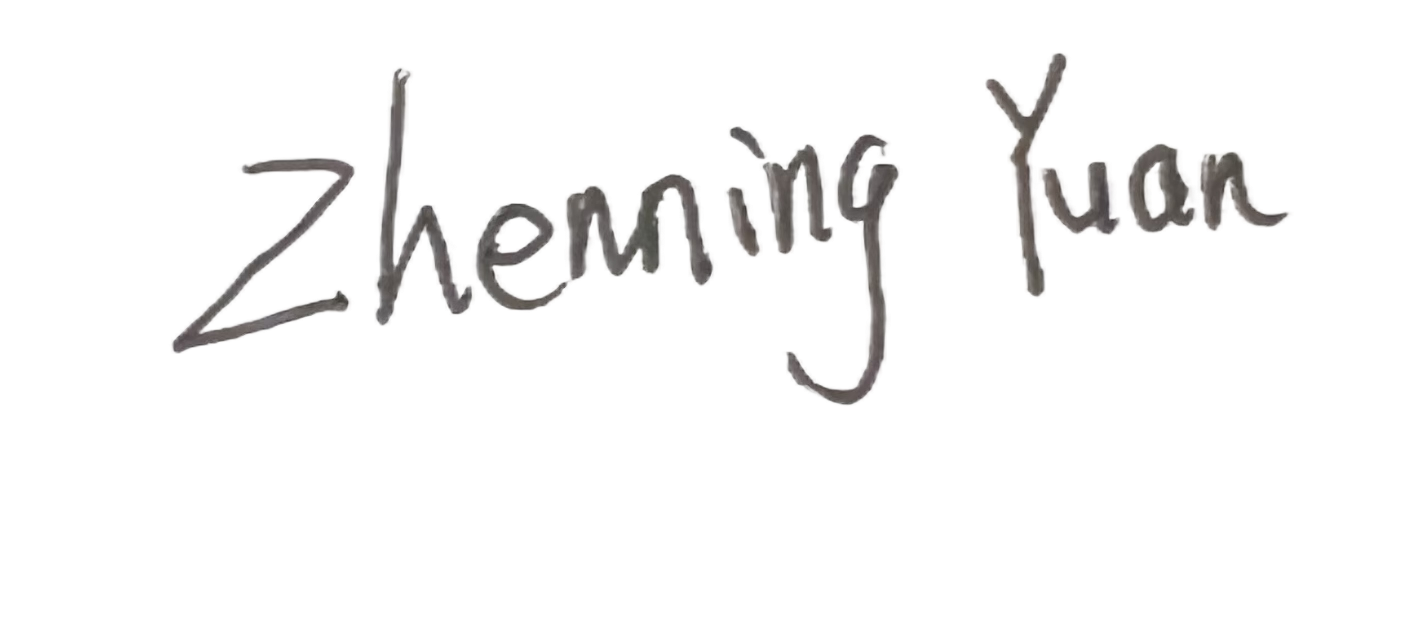 Zhenning Yuan